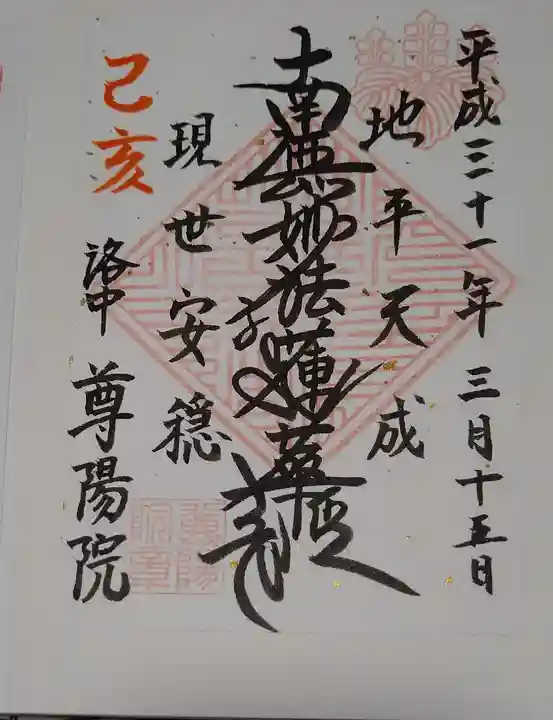 平成三十一年 三月十五日
地平天成
南無妙法蓮華経
現世安穏
己亥
洛中 尊陽院